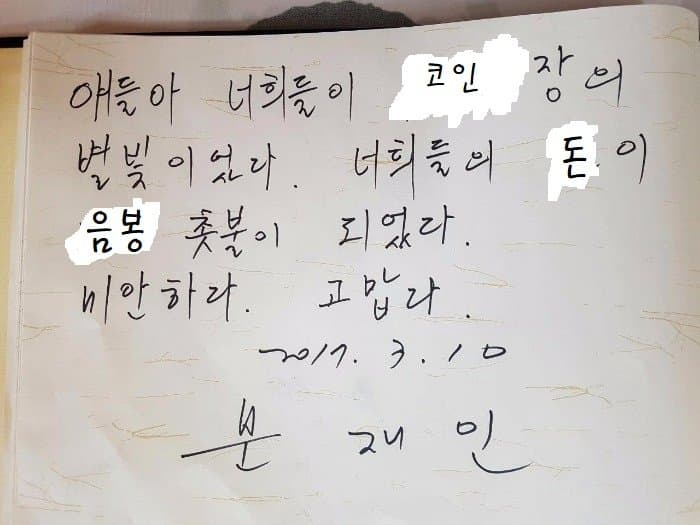 얘들아 너희들이 코인 장의
별빛이었다. 너희들의 돈이
음봉 촛불이 되었다.
미안하다. 고맙다.
2017. 3. 10
문 재 인